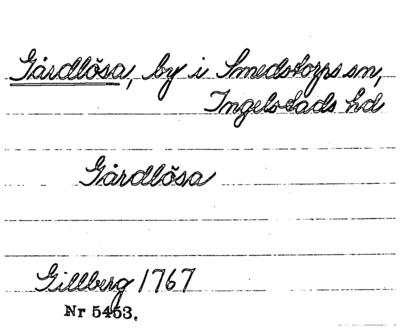 Gårdlösa, by i Smedstorps sn,
Ingelstads hd
Gårdlösa
Gillberg 1767
Nr 5453.